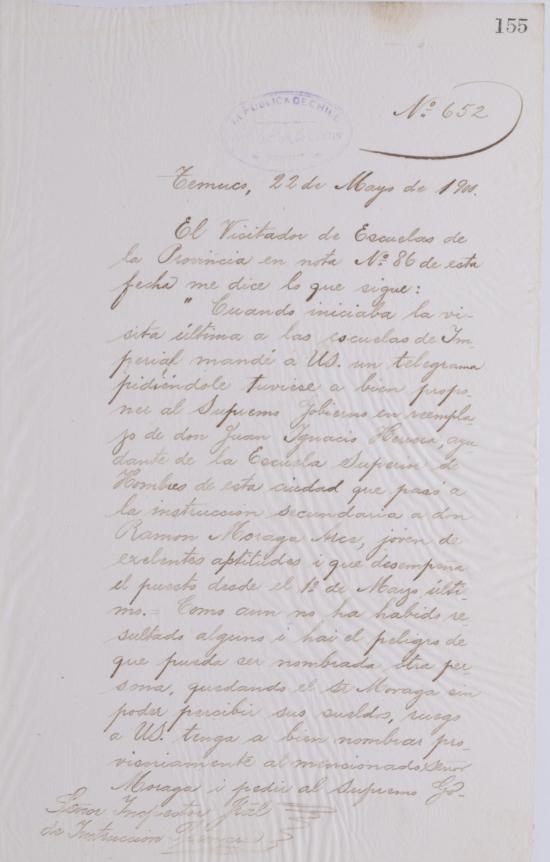 155
Nº 652
REPUBLICA DE CHILE
Temuco, 22 de Mayo de 1900.
El Visitador de Escuelas de
la Provincia en nota Nº 86 de esta
fecha me dice lo que sigue:
" Cuando iniciaba la vi-
sita última a las escuelas de Im-
perial mandé a US. un telegrama
pidiéndole tuviese a bien propo-
ner al Supremo Gobierno en reempla-
zo de don Juan Ignacio Herrera, ayu-
dante de la Escuela Superior de
Hombres de esta ciudad que pasó a
la instruccion secundaria a don
Ramon Moraga Arce, jóven de
exelentes aptitudes i que desempeña
el puesto desde el 1º de Mayo últi-
mo.= Como aun no ha habido re-
sultado alguno i hai el peligro de
que pueda ser nombrada otra per-
sona, quedando el Sr Moraga sin
poder percibir sus sueldos, ruego
a US. tenga a bien nombrar pro-
visoriamente al mencionado Señor
Moraga i pedir al Supremo Go-
Señor Inspector Jral
de Instruccion Primaria